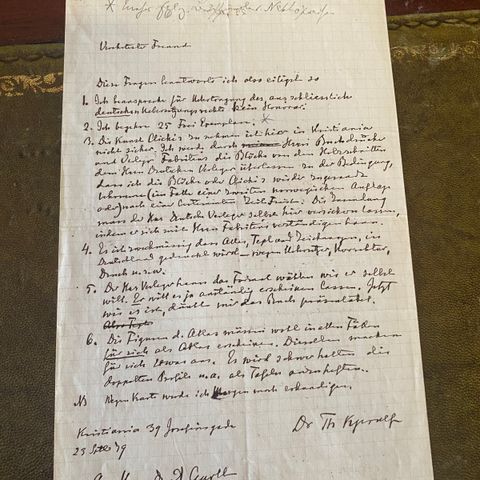 Verehrtester Freund
Diese Fragen beantworte ich also eiligst so
1. Ich beanspruche für Uebertragung des ausschliesslich
deutschen Uebersetzungsrechts kein Honorar.
2. Ich begehre 25 Frei Exemplare. *
3. Die Kunst Clichés zu nehmen ist hier in Kristiania
nicht sicher. Ich werde durch Herrn Buchdrucker
und Verleger Fabritius die Blöcke von den Holzschnitten
dem Herrn Deutschen Verleger überlassen zu der Bedingung,
dass ich die Blöcke oder Clichés wieder zugesandt
bekomme im Falle einer zweiten norwegischen Auflage
oder auch eine Sendung
muss der Herr Deutsche Verleger selbst hier versichern lassen,
indem er sich mit Herrn Fabritius verständigen kann.
4. Es ist zweckmässig dass Atlas, Text und Zeichnungen, in
Deutschland gedruckt wird – wegen Uebersetzer, Korrektur,
Druck u.s.w.
5. Der Herr Verleger kann das Format wählen wie er selbst
will. Er will es ja anständig erscheinen lassen. Jetzt
wie es ist, däucht mir das Buch
6. Die Figuren d. Atlas müssen wohl in allen Fällen
für sich als Atlas erscheinen. Dieselben machen
für sich etwas aus. Es wird schwer halten die
doppelten Profile u.a. als Tafeln anzuheften.
NB Wegen Karte werde ich Morgen mich erkundigen.
Kristiania 39 Josefinegade
23 79
Dr Th Kjerulf